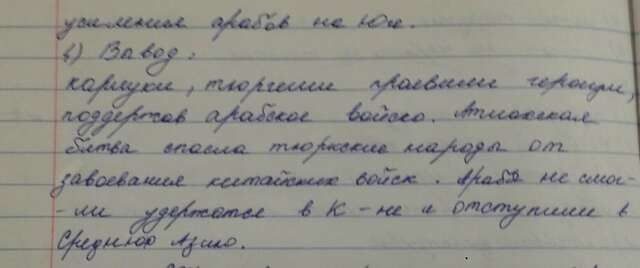 усиления арабов на Юге.
в) Вывод:
карлуки, тюргеши проявили героизм,
поддержав арабское войско. Атлахская
битва спасла тюркские народы от
завоевания китайских войск. Арабы не смог-
-ли удержатся в К-не и отступили в
Среднюю Азию.